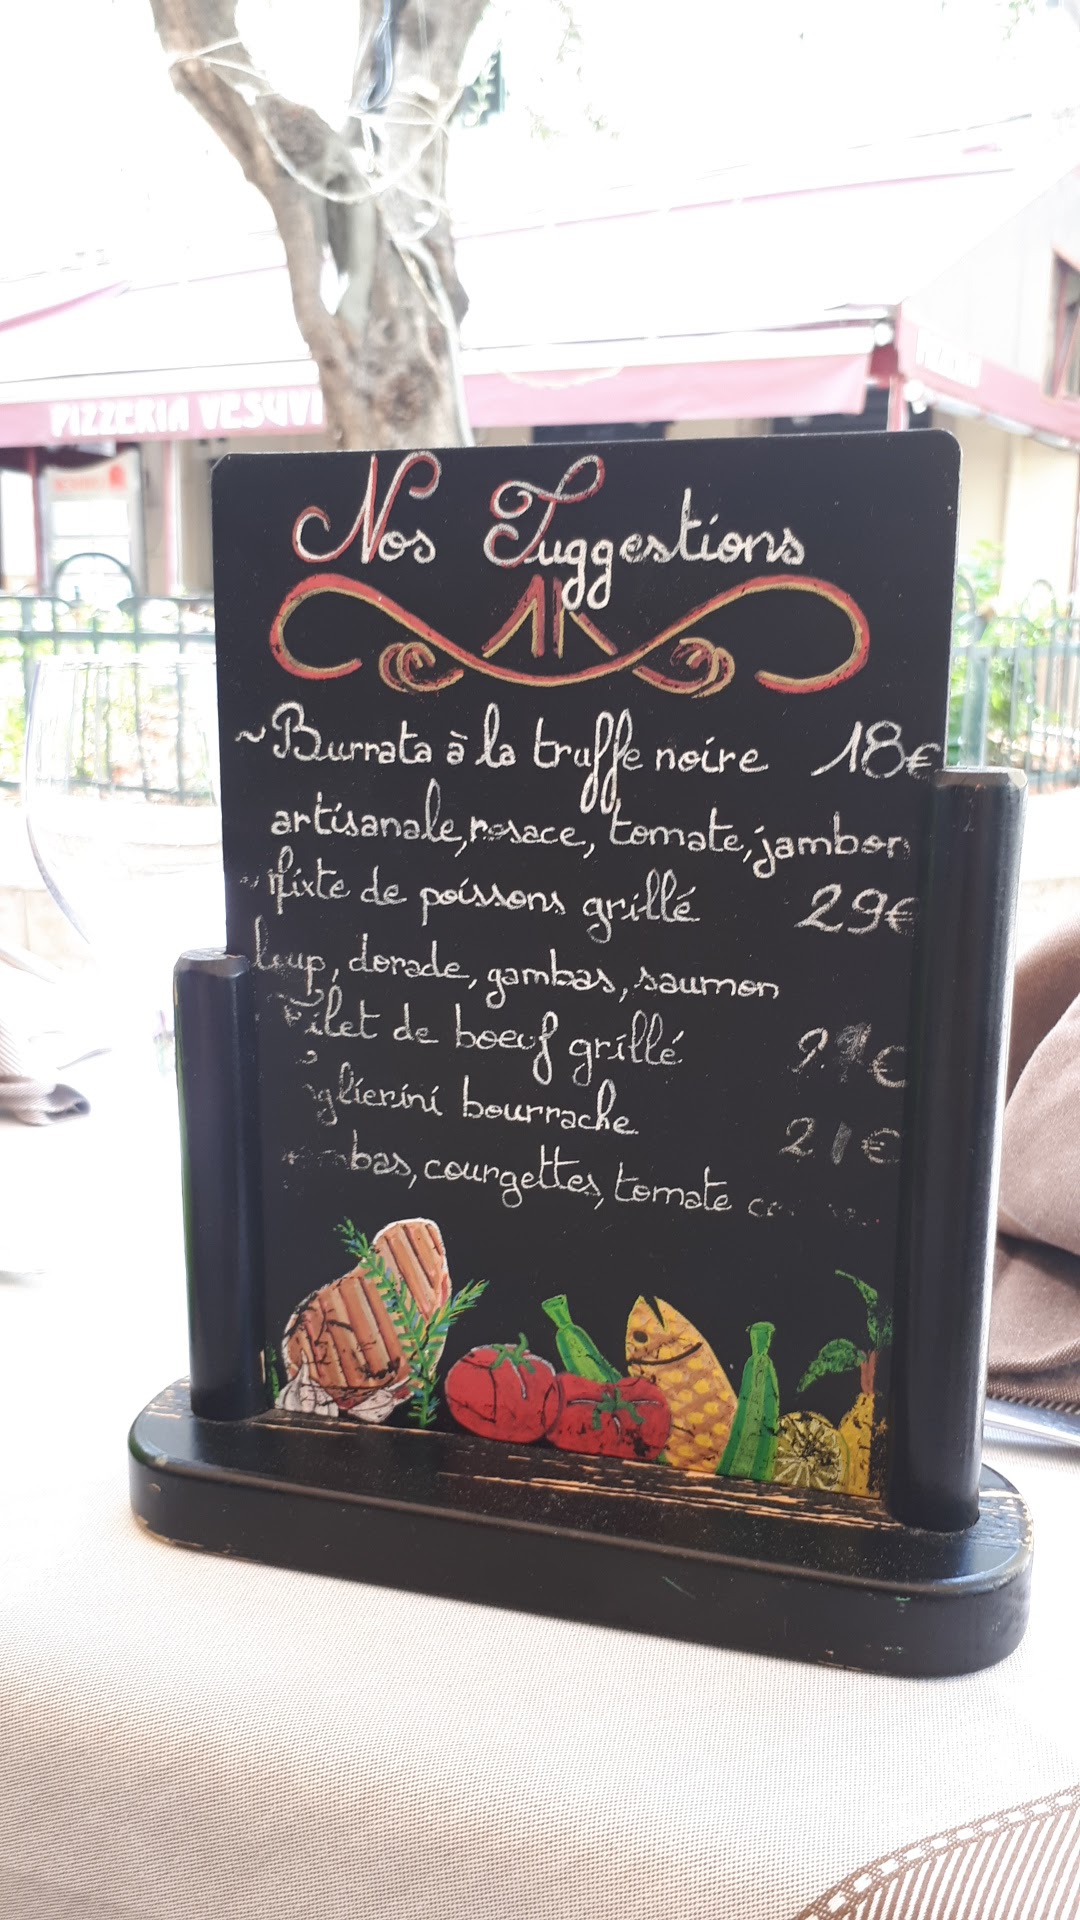 PIZZERIA VESUVI
Nos Suggestions
~Burrata à la truffe noire 18€
artisanale, rosace, tomate, jambon
~ Mixte de poissons grillé 29€
loup, dorade, gambas, saumon
Filet de boeuf grillé
bourrache 21€
courgettes, tomate